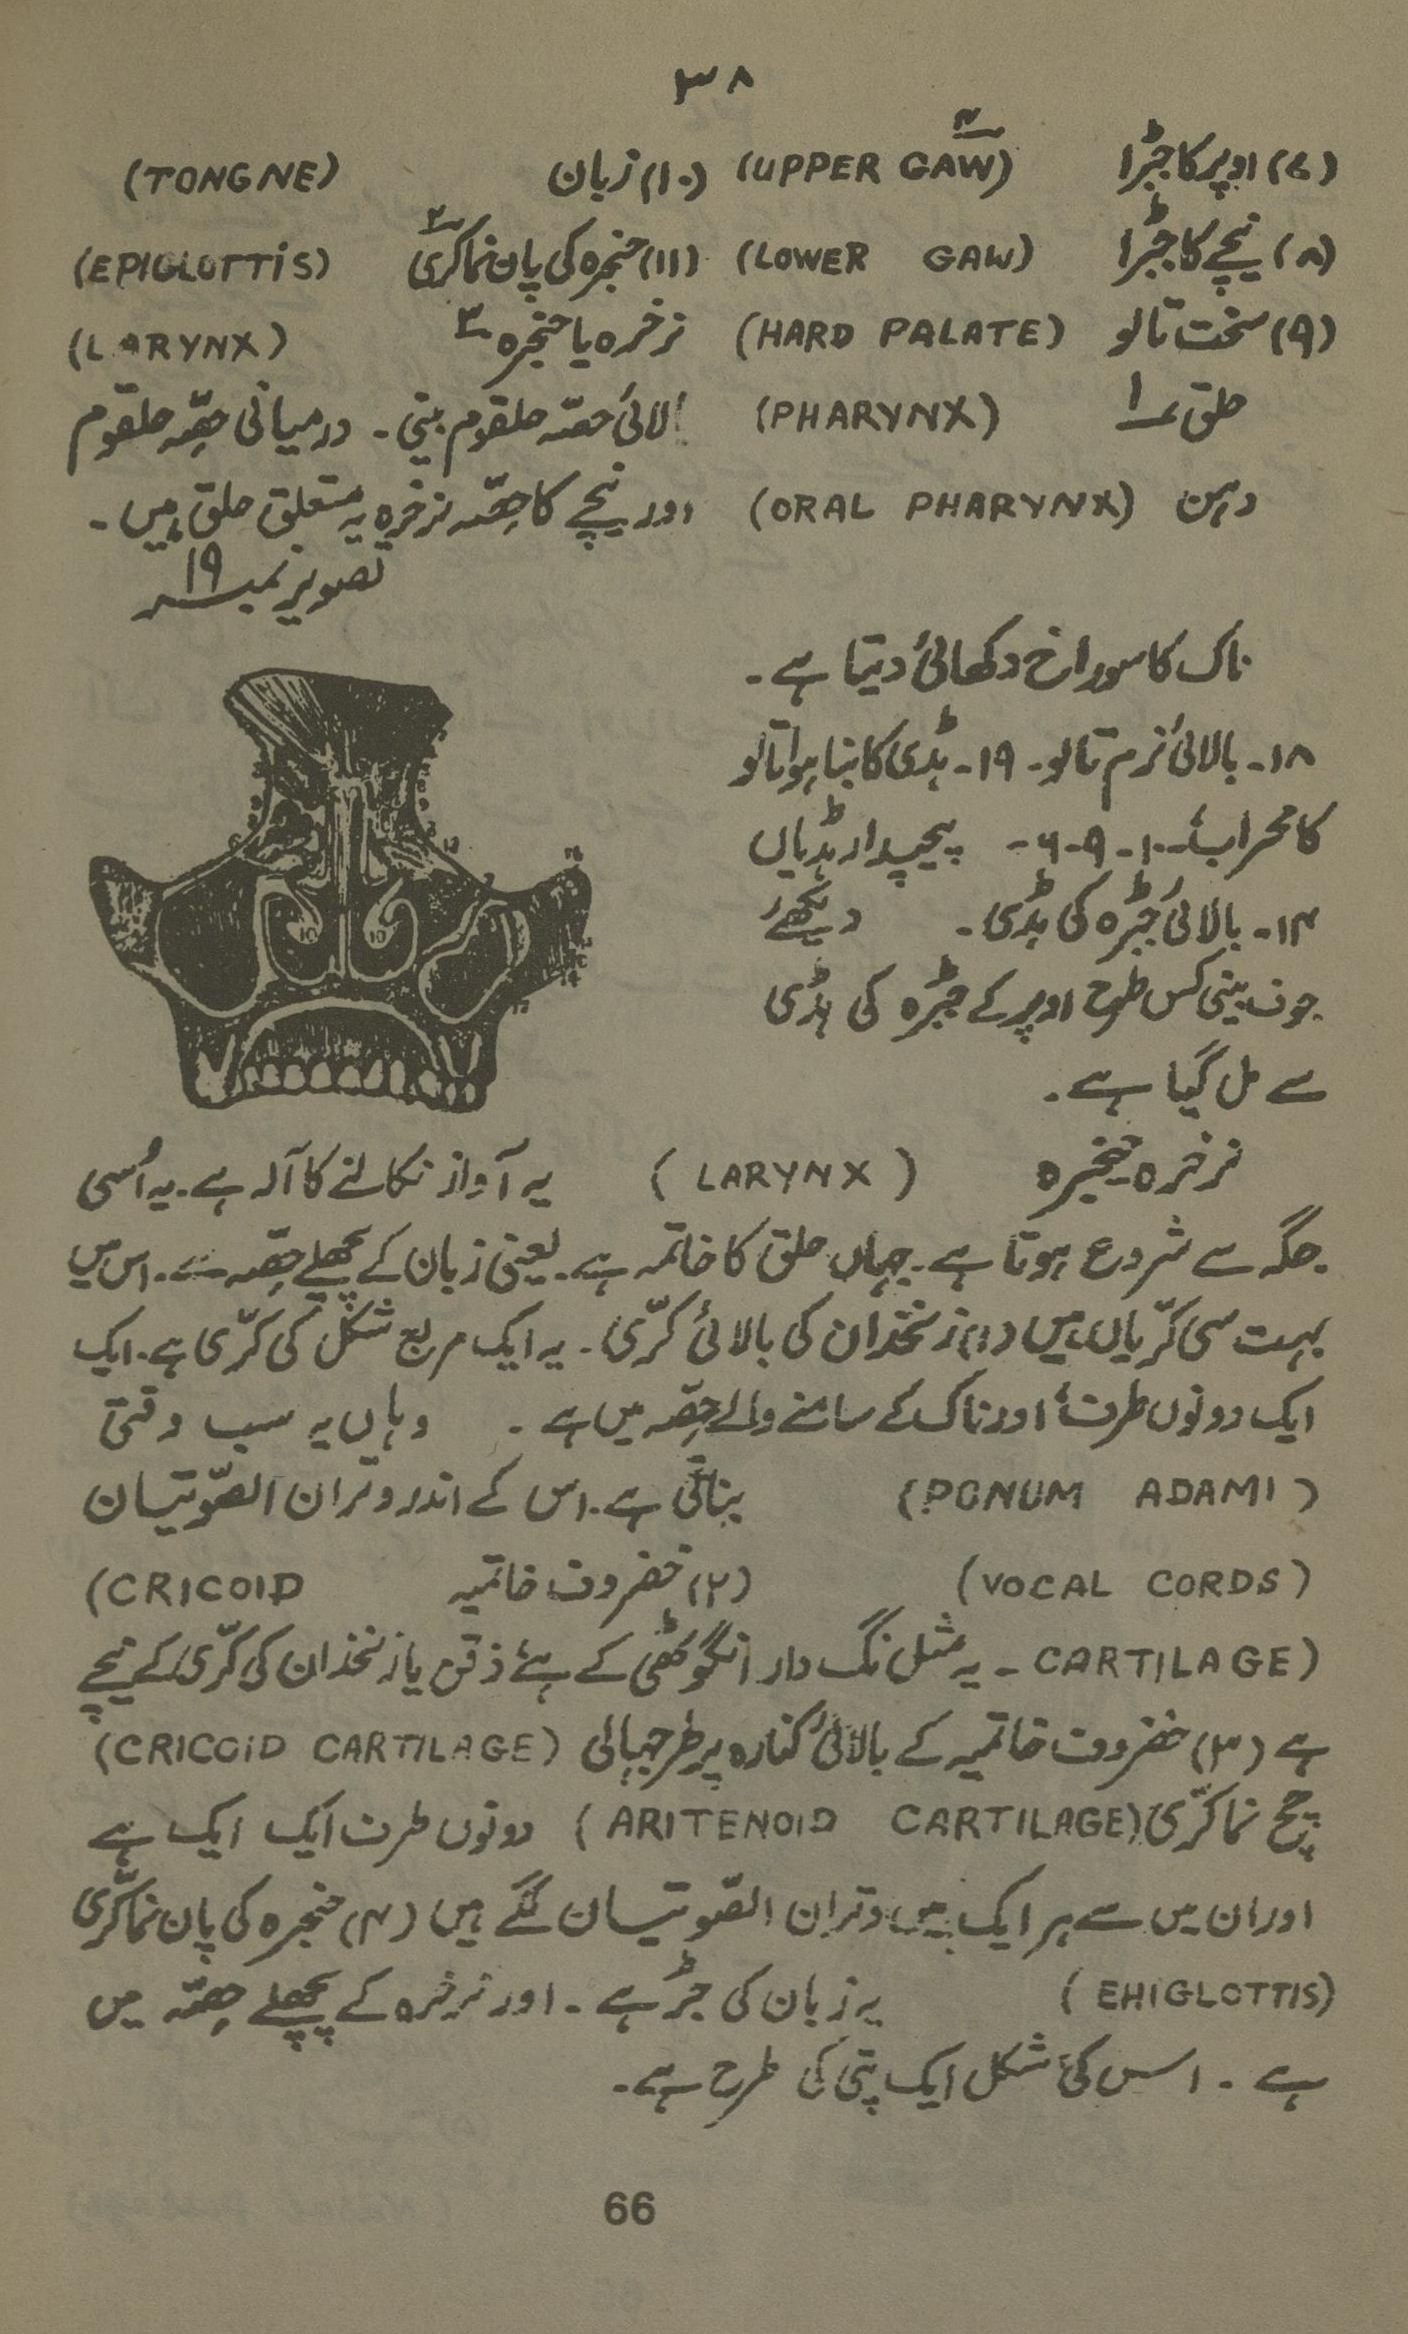 ۳۸
(۷) اوپر کا جبڑا (UPPER GAW) ۴ (۱۰) زبان (TONGNE)
(۸) نیچے کا جبڑا (LOWER GAW) (۱۱) حنجرہ کی پان نما کری ۲ (EPIGLOTTIS)
(۹) سخت تالو (HARD PALATE) نرخرہ یا حنجرہ ۳ (LARYNX)
حلق ۱ (PHARYNX) بالائی حصہ حلقوم بینی ۔ درمیانی حِصّہ حلقوم
دہن (ORAL PHARYNX) اور نیچے کا حِصّہ نرخرہ یہ متعلق حلق ہیں ۔
تصویر نمبر ۱۹
ناک کا سوراخ دکھائی دیتا ہے ۔
۱۸۔ بالائی نرم تالو ۔ ۱۹۔ ہڈی کا بنا ہوا تالو
کا محراب ۔ ۱۰ ۔ ۹ ۔ ۶ ۔ پیچیدار ہڈیاں
۱۴۔ بالائی جبڑہ کی ہڈی ۔ دیکھئے
جوف بینی کس طرح اوپر کے جبڑہ کی ہڈی
سے مل گیا ہے ۔
نرخرہ حنجرہ (LARYNX) یہ آواز نکالنے کا آلہ ہے ۔ یہ اُسی
جگہ سے شروع ہوتا ہے ۔ جہاں حلق کا خاتمہ ہے ۔ یعنی زبان کے پچھلے حِصّہ سے ۔ اس میں
بہت سی کرّیاں ہیں (۱) زنخدان کی بالائی کرّی ۔ یہ ایک مربع شکل کی کرّی ہے ۔ ایک
ایک دونوں طرف اور ناک کے سامنے والے حِصّہ میں ہے ۔ وہاں یہ سب وقتی
(PONUM ADAMI) بناتی ہے ۔ اس کے اندر وتران الصّوتیان
(VOCAL CORDS) (۲) خضروف خاتمیہ (CRICOID
CARTILAGE) ۔ یہ مثل نگ دار انگوٹھی کے ہے ذقن یا زنخدان کی کرّی کے نیچے
ہے (۳) خضروف خاتمیہ کے بالائی کنارہ پر طرجہالی (CRICOID CARTILAGE)
چمچ نما کرّی (ARITENOID CARTILAGE) دونوں طرف ایک ایک ہے
اور ان میں سے ہر ایک میں وتران الصّوتیان لگے ہیں (۴) حنجرہ کی پان نما کرّی
(EHIGLOTTIS) یہ زبان کی جڑ ہے ۔ اور نرخرہ کے پچھلے حِصّہ میں
ہے ۔ اس کی شکل ایک پتی کی طرح ہے ۔
66